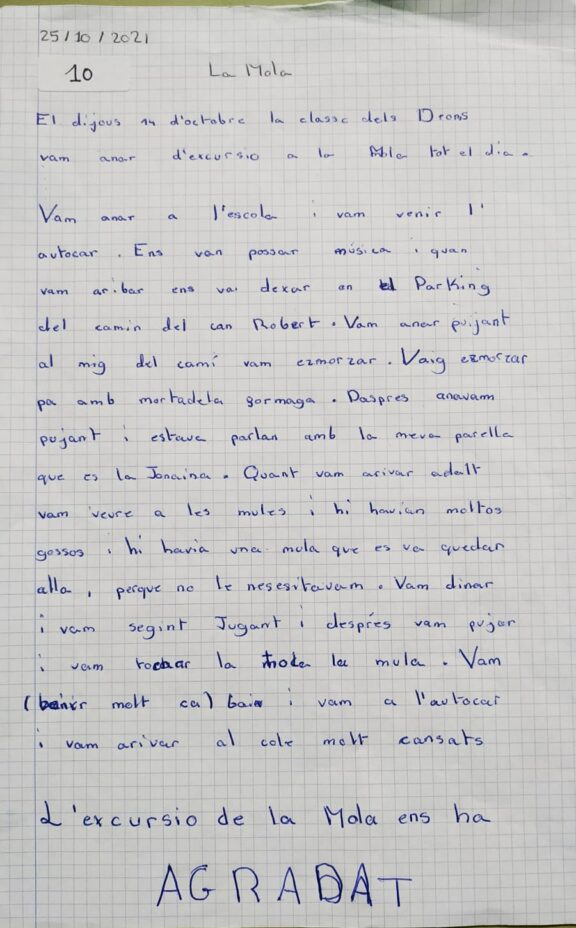 25/10/2021
10
La Mola
El dijous 14 d'octobre la classe dels Drons
vam anar d'excursio a la Mola tot el dia.
Vam anar a l'escola i vam venir l'
autocar. Ens van possar música i quan
vam aribar ens vai dexar an el Parking
del camin del can Robert. Vam anar pujant
al mig del camí vam ezmorzar. Vaig ezmorzar
pa amb mortadela gormaga. Daspres anavam
pujant i estava parlan amb la meva parella
que es la Janaina. Quant vam arivar adalt
vam veure a les mules i hi havian moltos
gossos i hi havia una mula que es va quedar
alla, perque no le nesesitavam. Vam dinar
i vam segint Jugant i després vam pujar
i vam tocar la la mula. Vam
( molt ca) baix i vam a l'autocar
i vam arivar al cole molt cansats
L'excursio de la Mola ens ha
AGRADAT